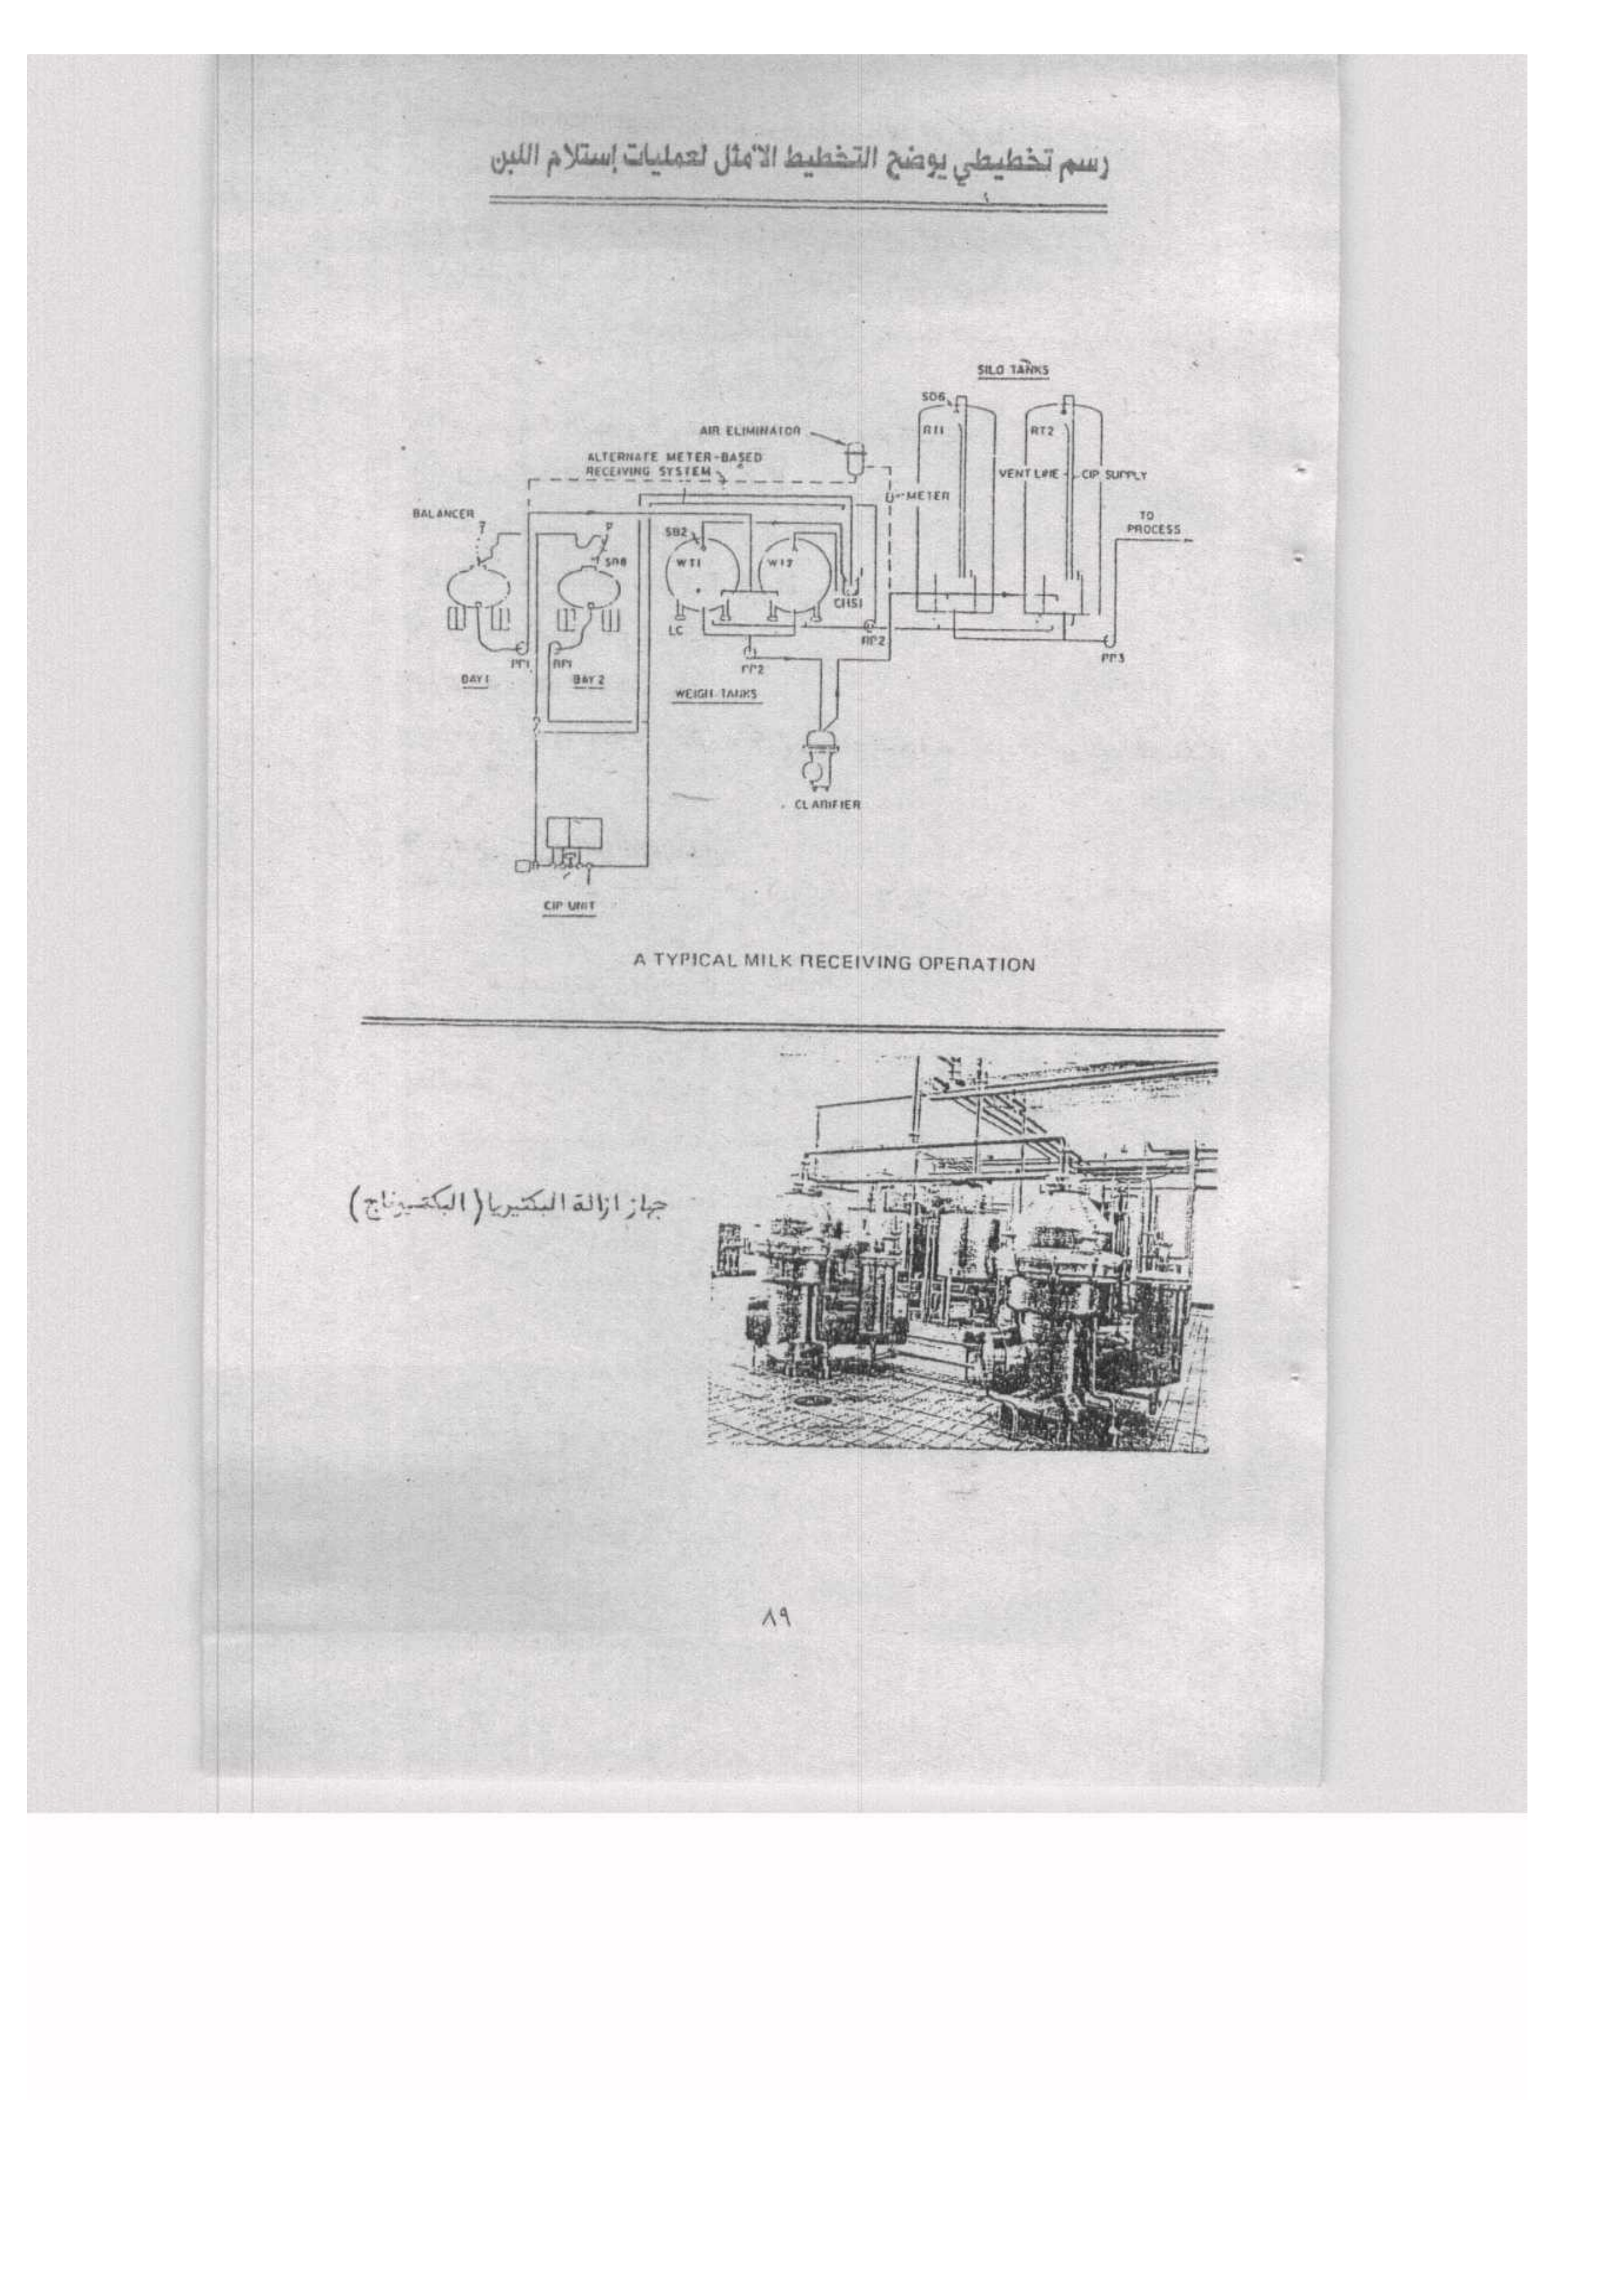 رسم تخطيطي يوضح التخطيط الأمثل لعمليات إستلام اللبن
SILO TANKS
SD6
AIR ELIMINATOR
RT1
RT2
ALTERNATE METER-BASED
RECEIVING SYSTEM
VENT LINE
CIP SUPPLY
METER
BALANCER
TO
PROCESS
SB2
WT1
WT2
LC
RP2
PP1
RP1
PP2
PP3
BAY 1
BAY 2
WEIGH TANKS
CLARIFIER
CIP UNIT
A TYPICAL MILK RECEIVING OPERATION
جهاز ازالة البكتيريا ( البكتيوناج )
٨٩